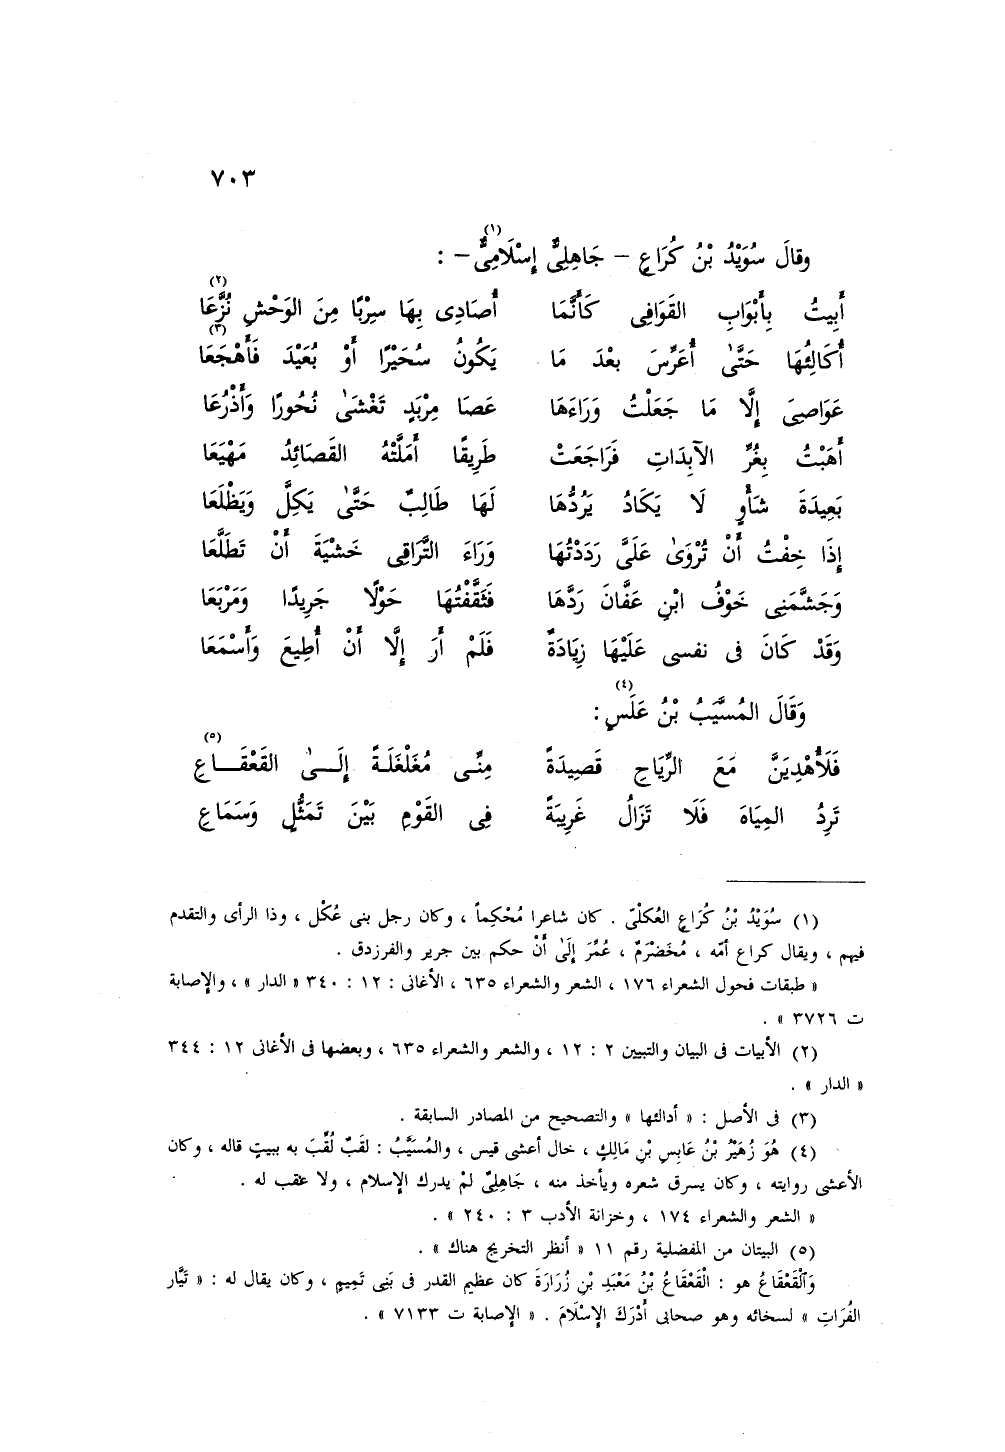 ٧٠٣
وقالَ سُوَيْدُ بْنُ كُرَاعٍ – جَاهِلِىٌّ إِسْلَامِىٌّ(١) – :
أَبِيتُ بِأَبْوَابِ القَوَافِى كَأَنَّمَا أُصَادِى بِهَا سِرْبًا مِنَ الوَحْشِ نُزَّعَا(٢)
أُكَالِئُهَا حَتَّىٰ أُعَرِّسَ بعْدَ مَا يَكُونُ سُحَيْرًا أَوْ بُعَيْدَ فَأَهْجَعَا(٣)
عَوَاصِىَ إِلَّا مَا جَعَلْتُ وَرَاءَهَا عَصَا مِرْبَدٍ تَغْشَىٰ نُحُورًا وَأَذْرُعَا
أَهَبْتُ بِغُرِّ الآبِدَاتِ فَرَاجَعَتْ طَرِيقًا أَمَلَّتْهُ القَصَائِدُ مَهْيَعَا
بَعِيدَةَ شَأْوٍ لَا يَكَادُ يَرُدُّهَا لَهَا طَالِبٌ حَتَّىٰ يَكِلَّ وَيَظْلَعَا
إِذَا خِفْتُ أَنْ تُرْوَىٰ عَلَىَّ رَدَدْتُهَا وَرَاءَ التَّرَاقِى خَشْيَةَ أَنْ تَطَلَّعَا
وَجَشَّمَنِى خَوْفُ ابْنِ عَفَّانَ رَدَّهَا فَثَقَّفْتُهَا حَوْلًا جَرِيدًا وَمَرْبَعَا
وَقَدْ كَانَ فى نفسى عَلَيْهَا زِيَادَةٌ فَلَمْ أَرَ إِلَّا أَنْ أُطِيعَ وَأَسْمَعَا
وَقَالَ المُسَيَّبُ بْنُ عَلَسٍ(٤) :
فَلَأُهْدِيَنَّ مَعَ الرِّيَاحِ قَصِيدَةً مِنِّى مُغَلْغَلَةً إِلَىٰ القَعْقَاعِ(٥)
تَرِدُ المِيَاهَ فَلَا تَزَالُ غَرِيبَةً فِى القَوْمِ بَيْنَ تَمَثُّلٍ وَسَمَاعِ
(١) سُوَيْدُ بْنُ كُرَاعٍ العُكْلىّ . كان شاعرا مُحْكِماً ، وكان رجل بنى عُكْل ، وذا الرأى والتقدم
فيهم ، ويقال كراع أمّه ، مُخَضْرَمٌ ، عُمِّرَ إِلَىٰ أَنْ حكم بين جرير والفرزدق .
« طبقات فحول الشعراء ١٧٦ ، الشعر والشعراء ٦٣٥ ، الأغانى : ١٢ : ٣٤٠ « الدار » ، والإصابة
ت ٣٧٢٦ » .
(٢) الأبيات فى البيان والتبيين ٢ : ١٢ ، والشعر والشعراء ٦٣٥ ، وبعضها فى الأغانى ١٢ : ٣٤٤
« الدار » .
(٣) فى الأصل : « أدالئها » والتصحيح من المصادر السابقة .
(٤) هُوَ زُهَيْرُ بْنُ عَابِسِ بْنِ مَالِكٍ ، خال أعشى قيس ، والمُسَيَّبُ : لقَبٌ لُقِّبَ به ببيتٍ قاله ، وكان
الأعشى روايته ، وكان يسرق شعره ويأخذ منه ، جَاهِلِىٌّ لمْ يدرك الإسلام ، ولا عقب له .
« الشعر والشعراء ١٧٤ ، وخزانة الأدب ٣ : ٢٤٠ » .
(٥) البيتان من المفضلية رقم ١١ « أنظر التخريج هناك » .
وَالْقَعْقَاعُ هو : الْقَعْقَاعُ بْنُ مَعْبَدِ بْنِ زُرَارَةَ كان عظيم القدر فى بَنِى تَمِيمٍ ، وكان يقال له : « تَيَّار
الفُرَاتِ » لسخائه وهو صحابى أَدْرَكَ الإِسْلَامَ . « الإصابة ت ٧١٣٣ » .